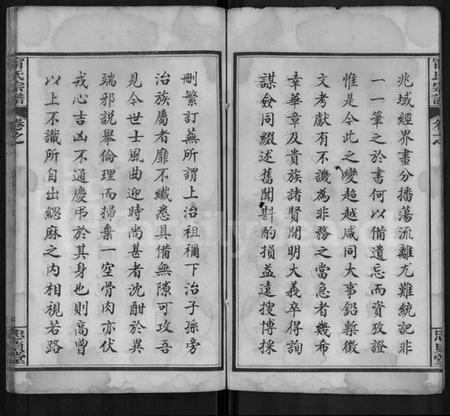 兆域經界書分播蕩流離尤難統記非
一一筆之於書何以備遺忘而資攷證
惟是今此之變超越咸同大事鉛槧徵
文考獻有不譏為非務之當急者幾希
幸華章及貴族諸賢開明大義卒得詢
謀僉同綴述舊聞斟酌損益遠搜博採
刪繁訂蕪所謂上治祖禰下治子孫旁
治族屬者靡不纖悉具備無隙可攻吾
見今世士風曲迎時尚甚者沈酣於異
端邪說舉倫理而掃棄一空骨肉亦伏
戎心吉凶不通慶弔於其身也則高曾
以上不識所自出緦麻之內相視若路
甯氏宗譜
卷之